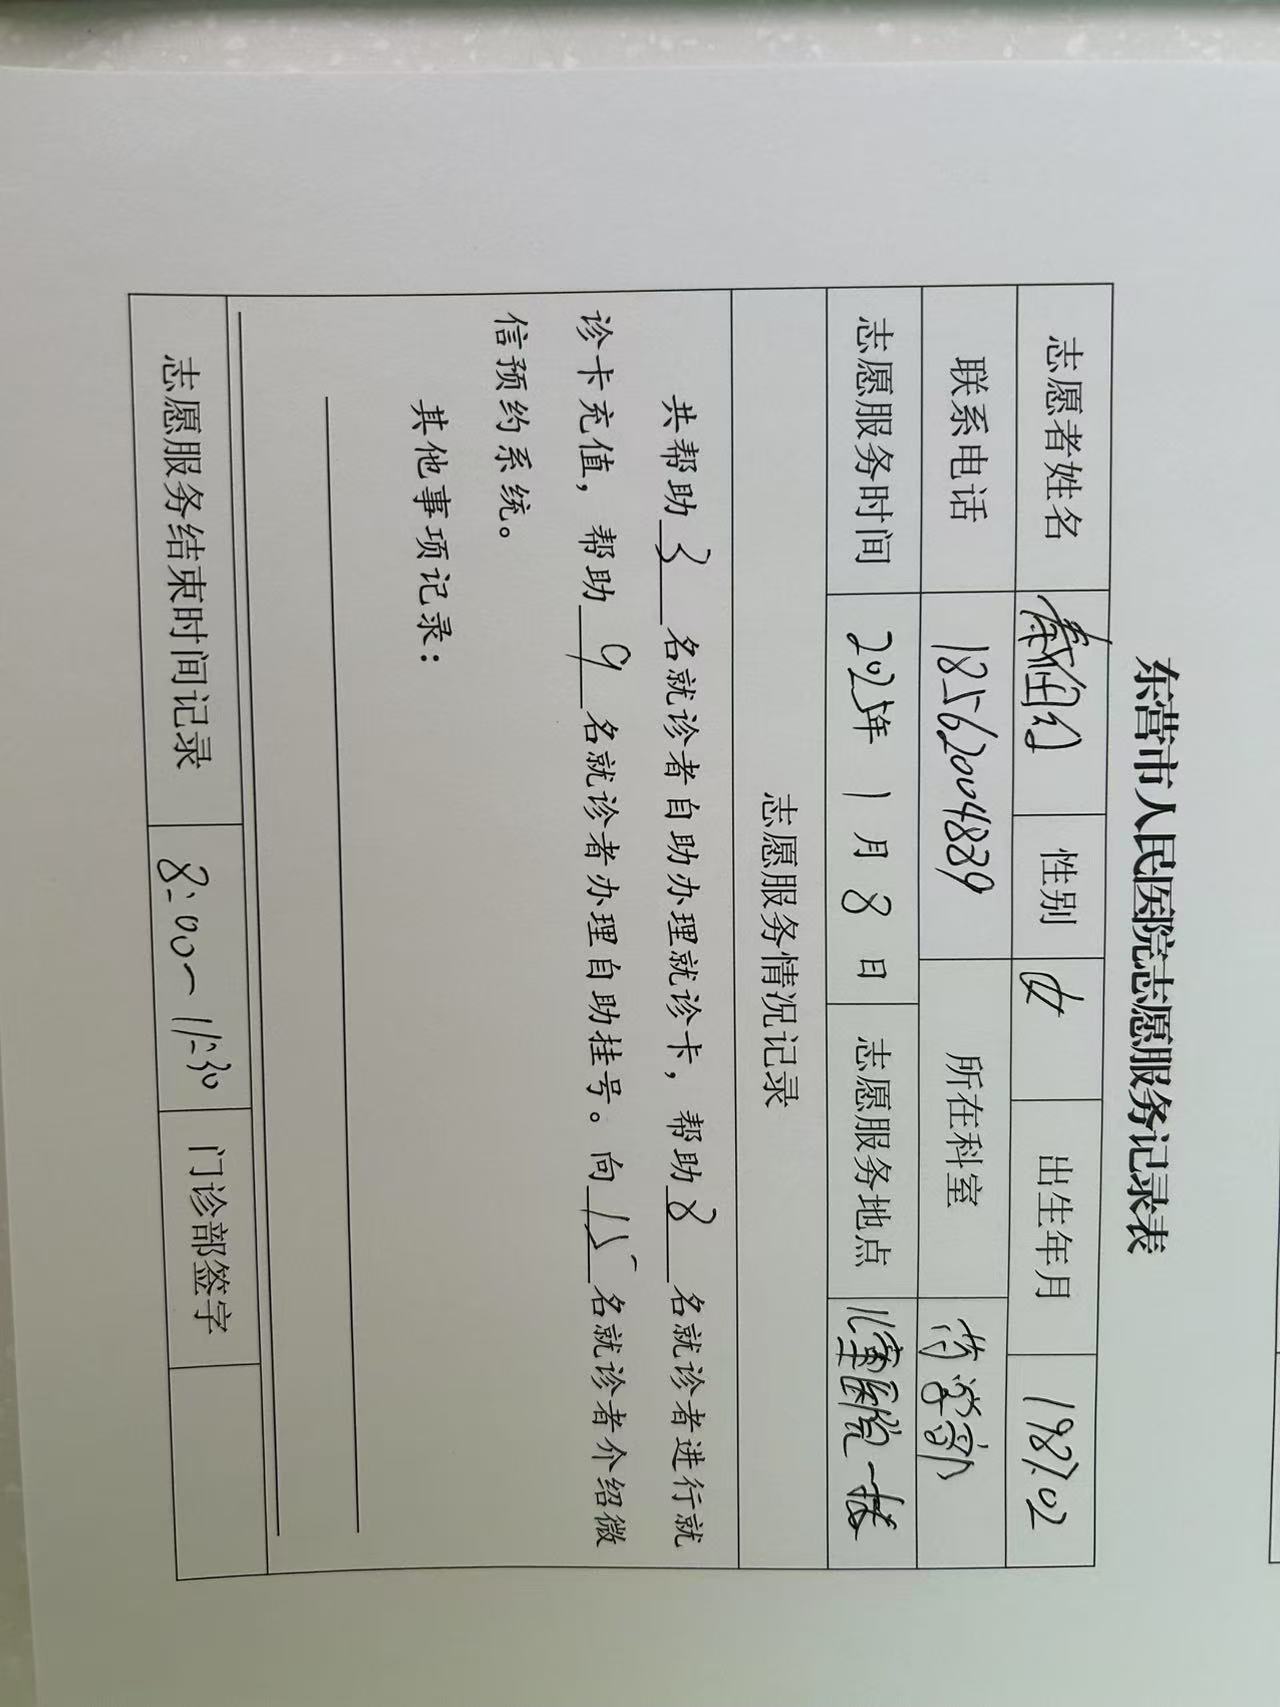 东营市人民医院志愿服务记录表
志愿者姓名 性别 女 出生年月 1987.02
联系电话 18562004839 所在科室 药学部
志愿服务时间 2025年 1 月 8 日 志愿服务地点 儿童医院一楼
志愿服务情况记录
共帮助 3 名就诊者自助办理就诊卡，帮助 8 名就诊者进行就
诊卡充值，帮助 9 名就诊者办理自助挂号。向 15 名就诊者介绍微
信预约系统。
其他事项记录：
志愿服务结束时间记录 8:00— 11:30 门诊部签字